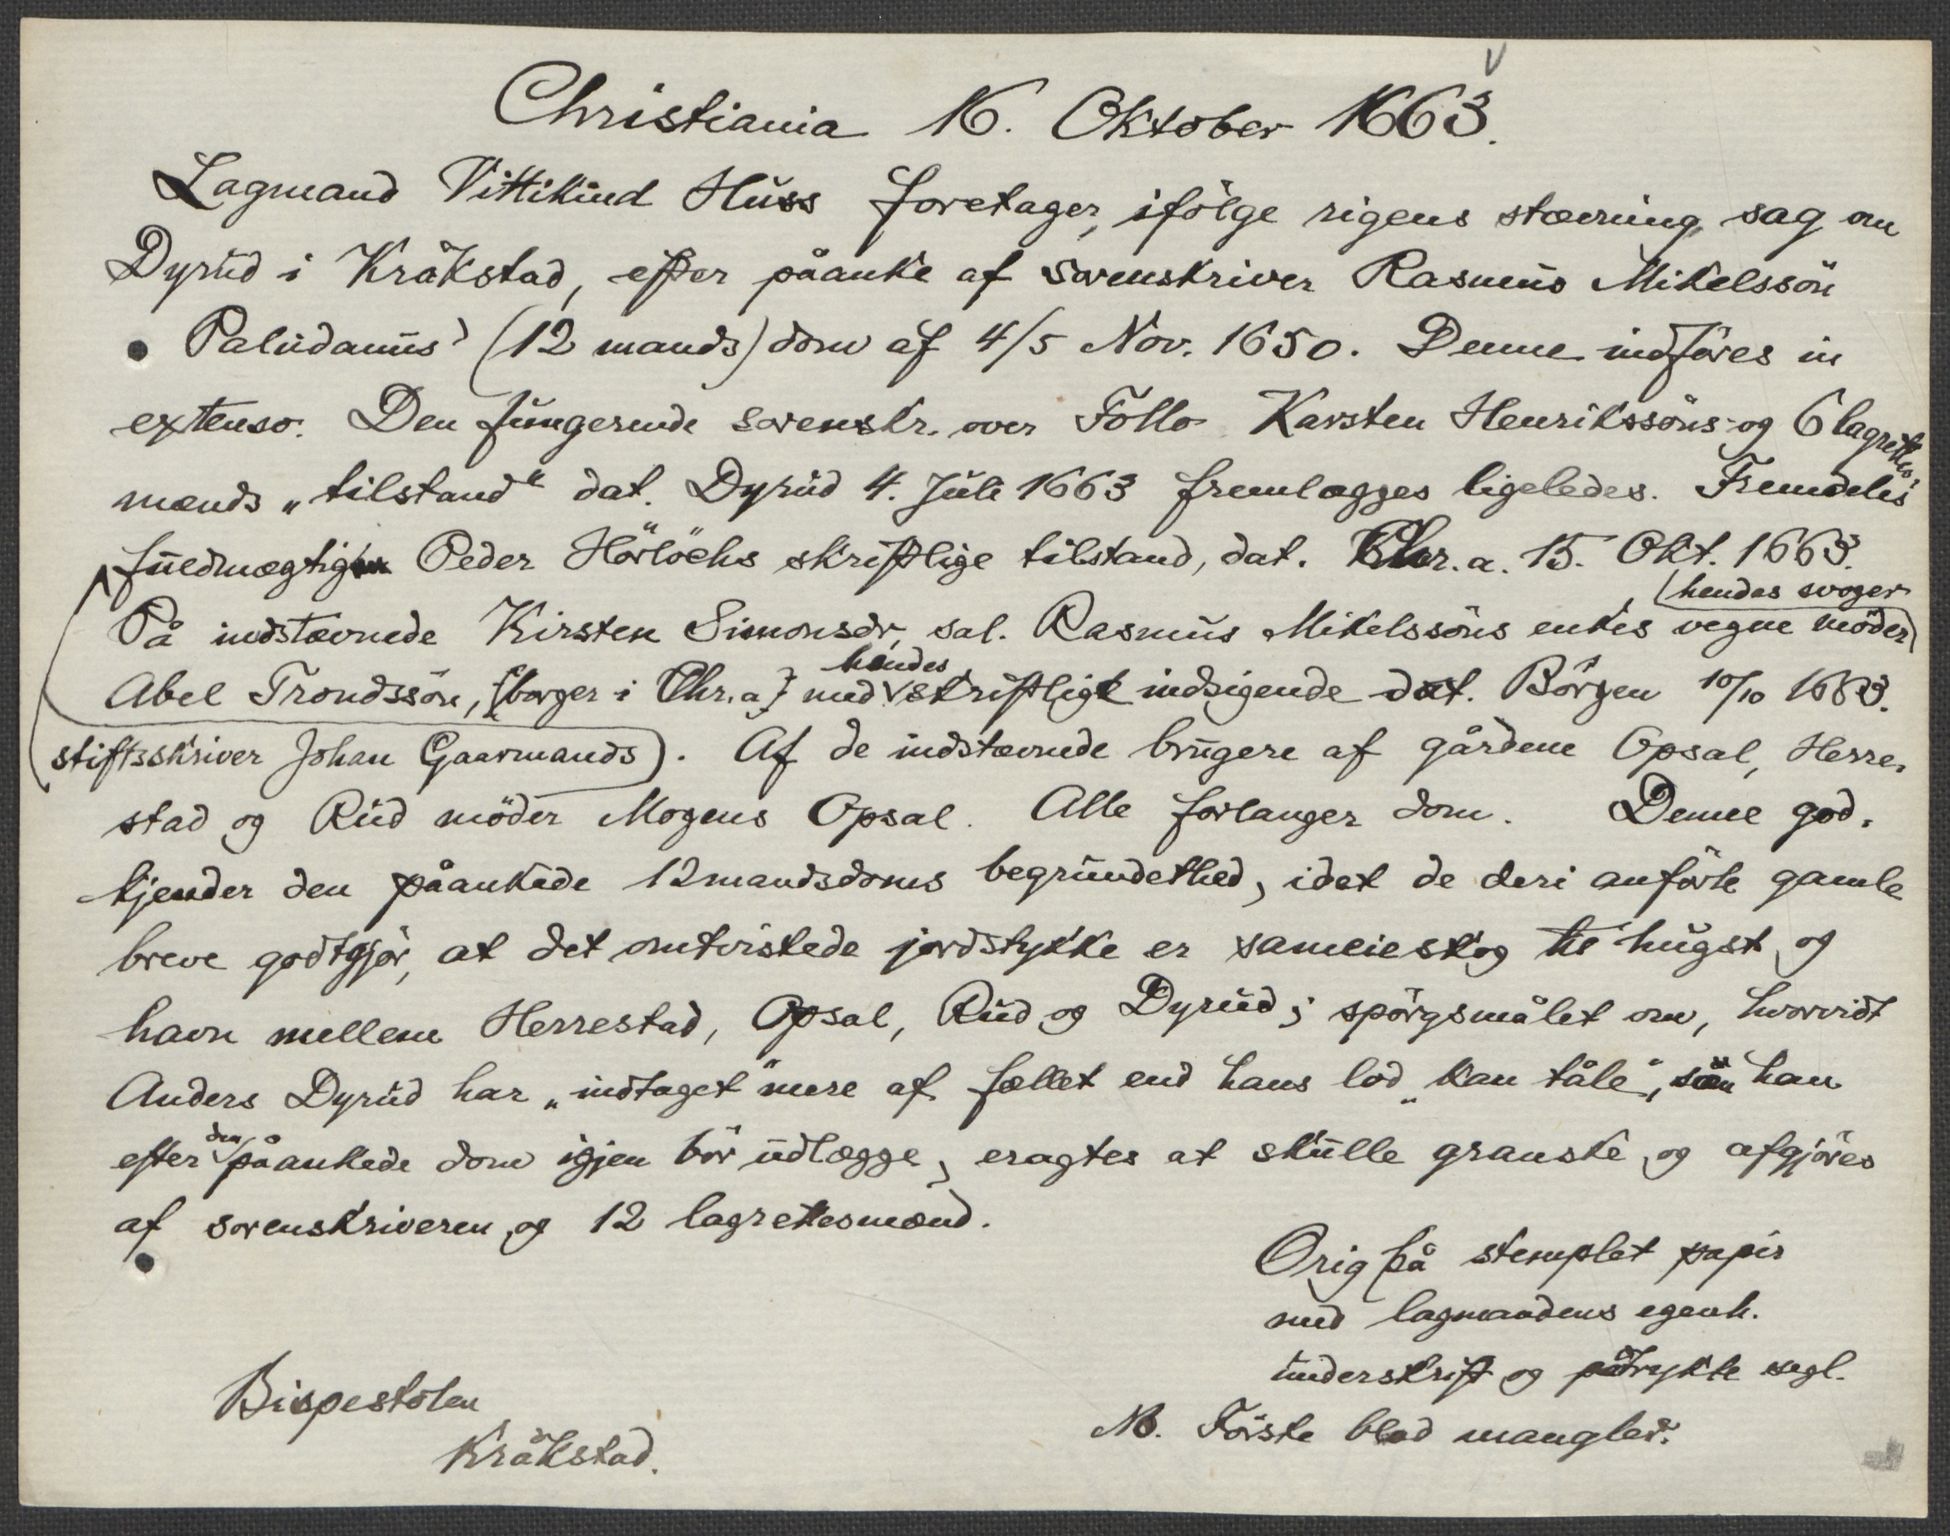 Christiania 16. Oktober 1663.
Lagmand Vittikind Huss foretager, ifölge rigens stævning, sag om
Dyrud i Kråkstad, efter påanke af sorenskriver Rasmus Mikelssön
Paludanus' (12 mands) dom af 4/5 Nov. 1650. Denne indföres in
extenso. Den fungerende sorenskr. over Follo Karsten Henrikssöns og 6 lagrettes-
mænds „tilstand“ dat. Dyrud 4. Juli 1663 fremlægges ligeledes. Fremdeles
fuldmægtigen Peder Hörlöchs skriftlige tilstand, dat. Chr.a. 15. Okt. 1663.
(hendes svoger
På indstævnede Kirsten Simonsdr, sal. Rasmus Mikelssöns enkes vegne möder
hendes
Abel Trondssön, [borger i Chr.a] med skriftligt indsigende dat. Börgen 10/10 1663.
stiftsskriver Johan Gaarmands). Af de indstævnede brugere af gårdene Opsal, Herre-
stad og Rud möder Mogens Opsal. Alle forlanger dom. Denne god-
kjender den påankede 12mandsdoms begrundethed, idet de deri anförte gamle
breve godtgjör, at det omtvistede jordstykke er sameieskog til hugst og
havn mellem Herrestad, Opsal, Rud og Dyrud; spörgsmålet om, hvorvidt
Anders Dyrud har „indtaget“ mere af fællet end hans lod „kan tåle“, som han
den
efter påankede dom igjen bör udlægge, eragtes at skulle granske og afgjöres
af sorenskriveren og 12 lagrettesmænd.
Orig på stemplet papir
med lagmandens egenh.
underskrift og påtrykte segl.
NB. Förste blad mangler.
Bispestolen
Kråkstad.